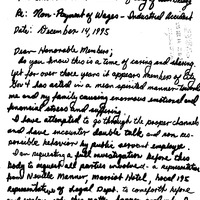 Re: Non-Payment of Wages - Industrial Accident
Date: December 14, 1995
Dear Honorable Members;
As you know this is a time of caring and sharing.
Yet for over three years it appears members of City
Gov't has acted in a mean spirited manner towards
me and my family causing enormous emotional and
financial stress and
I have attempted to go through the proper channels
and have encounter double talk and non res-
ponsible behavior by public servant employees.
I am requesting a full investigation before this
body to request all parties involved - a representative
from Neville Manner, Marriot Hotel, local 195
representatives of Legal Dept. to comeforth before